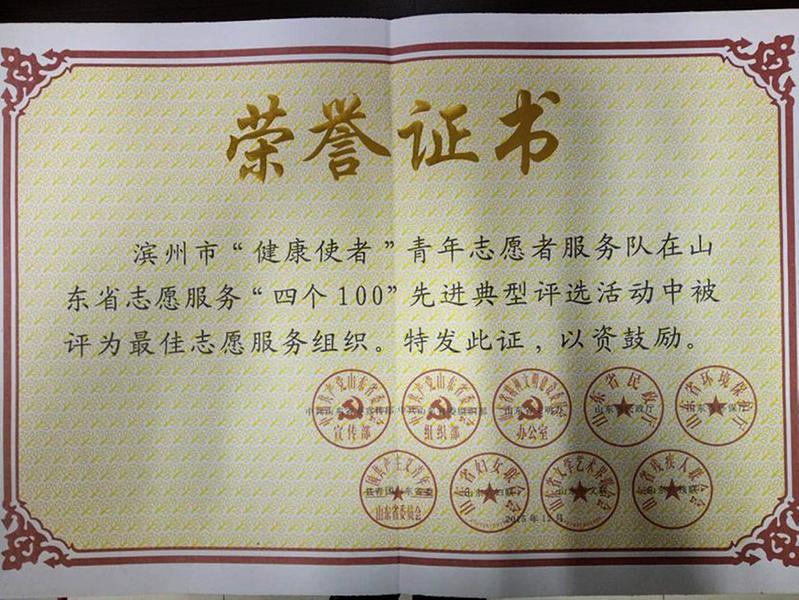 荣誉证书
滨州市“健康使者”青年志愿者服务队在山
东省志愿服务“四个100”先进典型评选活动中被
评为最佳志愿服务组织。特发此证，以资鼓励。
中国共产党山东省委员会 宣传部
中国共产党山东省委员会 组织部
办公室
山东省民政厅
山东省环境保护厅
山东省委员会
山东省妇女联合会
山东省文学艺术界联合会
山东省残疾人联合会
2015年12月